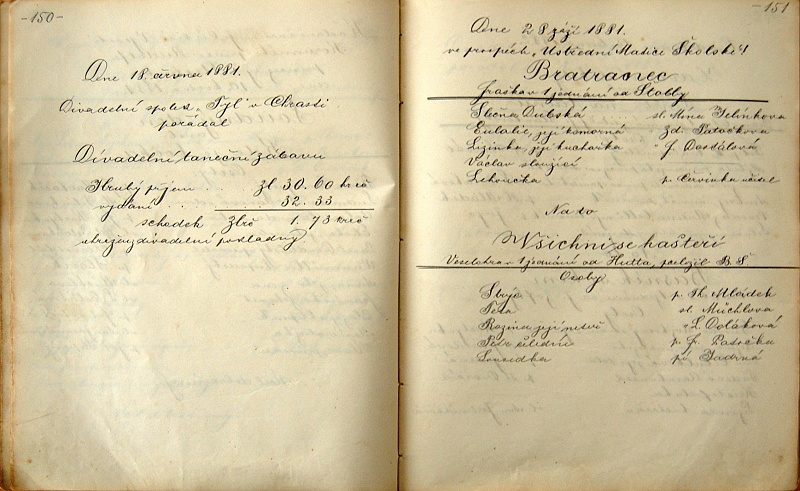 -150-
Dne 18. června 1881.
Divadelní spolek „Tyl" v Chrasti
pořádal
Divadelní taneční zábavu
Hrubý příjem . . zl. 30. 60 krč
vydání . . 32. 33
schodek zlrč 1. 73 krč
z divadelní pokladny
-151-
Dne 28 září 1881.
ve prospěch „Ústřední Matice Školské"!
Bratranec
fraška v 1 jednání od Stolby
Slečna Dubská sl. Mína Jelínkova
Eulalie, její komorná Zd. Patočkova
Lizinka, její kuchařka " F. Dostálova
Václav sloužící
Lehoučka p. Červinka učitel
Na to
Všichni se hašteří
Veselohra v 1 jednání od Hutta, přeložil B. Š.
Osoby
Strýc p. Th. Mládek
Teta sl. Müchlova
Rozina její neteř " L. Doláková
Petr p. Fr. Patočka
Sousedka pí Jadrná